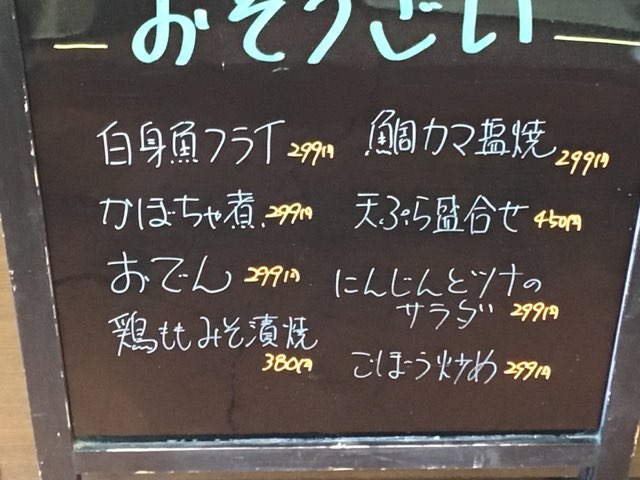 おそうざい
白身魚フライ 299円
かぼちゃ煮 299円
おでん 299円
鶏ももみそ漬焼
380円
鯛カマ塩焼 299円
天ぷら盛合せ 450円
にんじんとツナの
サラダ 299円
ごぼう炒め 299円